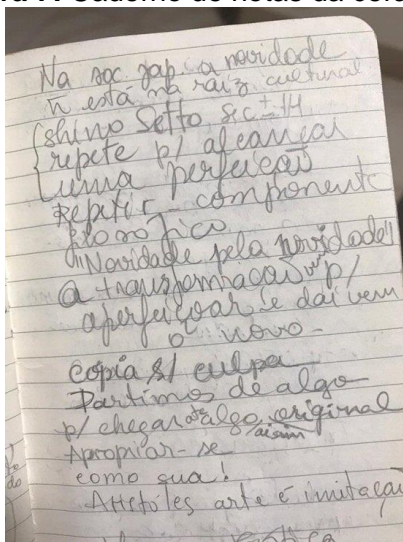 Caderno de notas da
Na soc jap. a novidade
ñ está na raiz cultural
shino Setto sec ± 14
repete p/ alcançar
uma perfeição
Repetir componente
filosófico
"Novidade pela novidade"
a transformação vem p/
aperfeiçoar e daí vem
o novo -
Copia s/ culpa
Partimos de algo
p/ chegar a algo original
aí sim
Apropriar-se
como sua!
arte é imitação